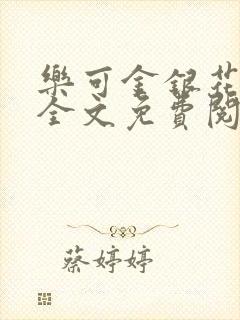 樂可金銀花
全文免費閱
蔡婷婷